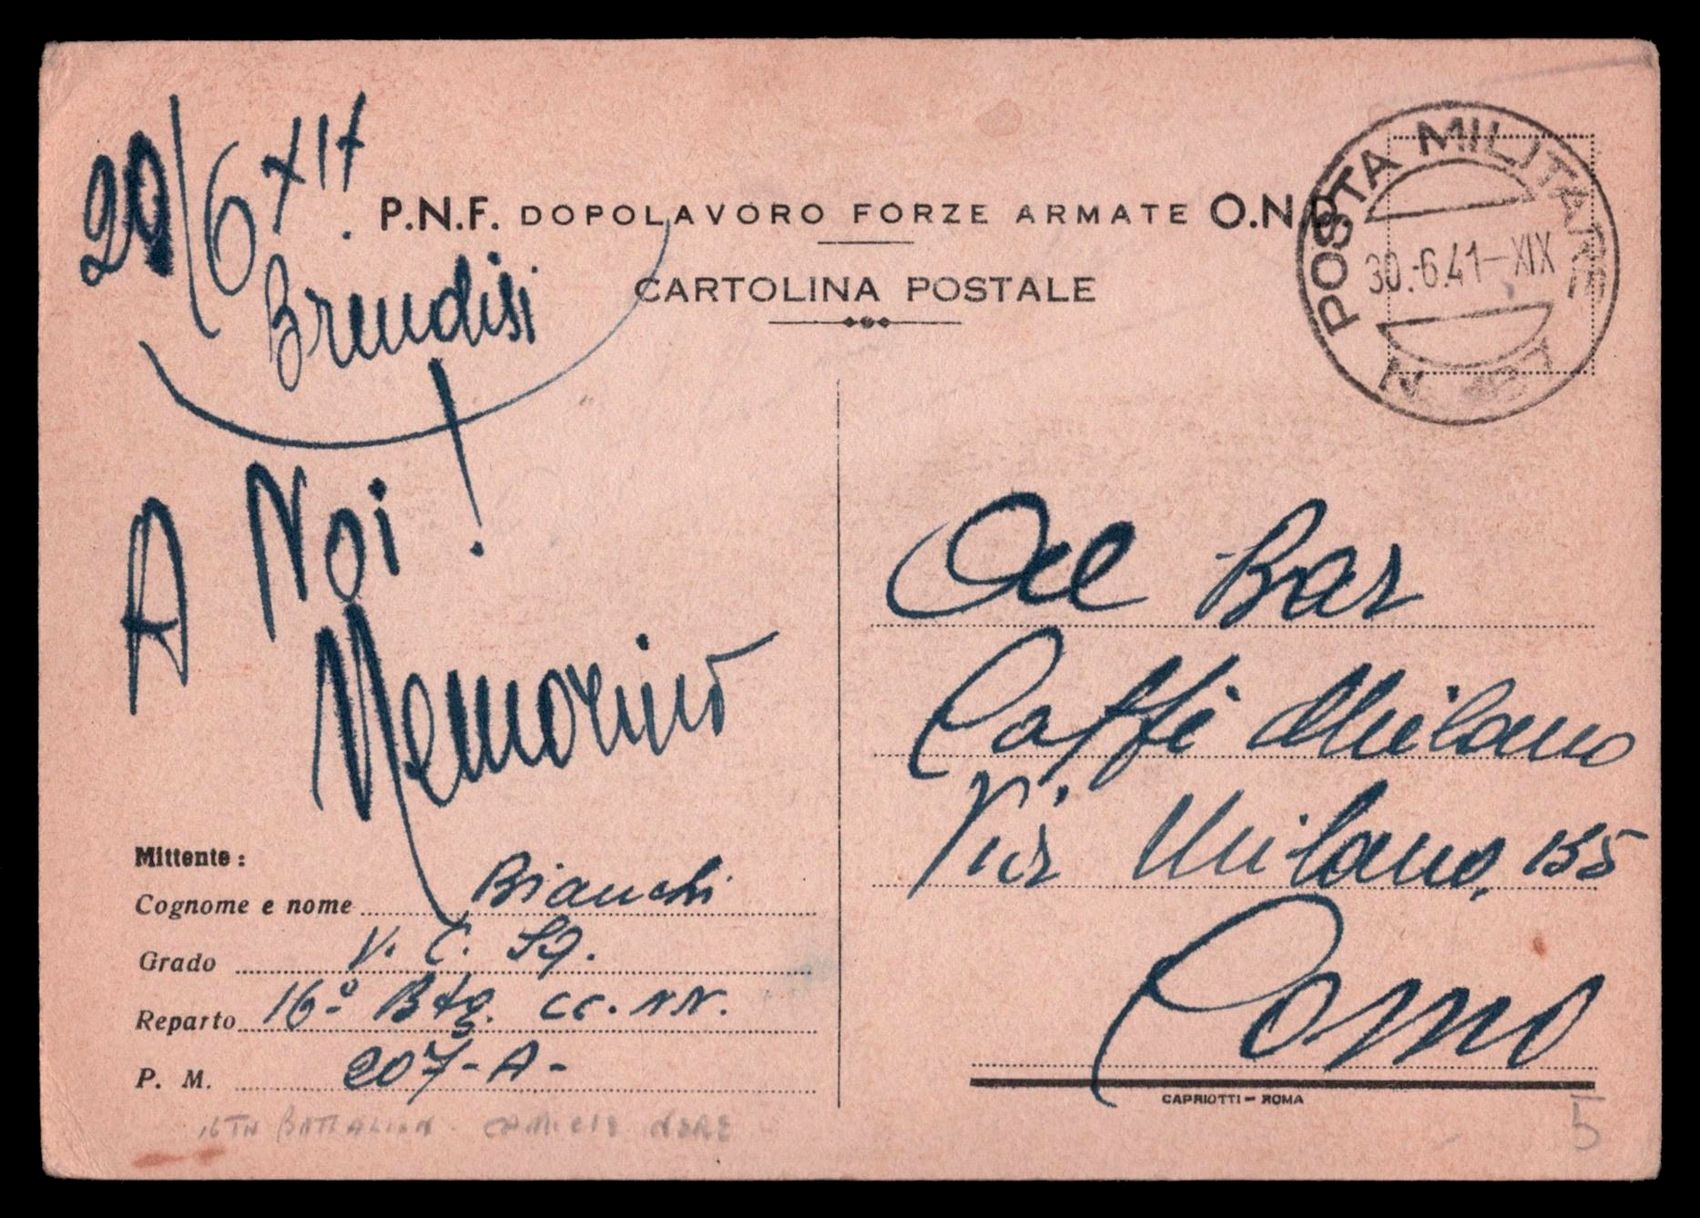 29/6 XIX
Brindisi
P.N.F. DOPOLAVORO FORZE ARMATE O.N.D.
CARTOLINA POSTALE
POSTA MILITARE
30.-6.41-XIX
N
A Noi!
Nemorino
Al Bar
Caffè Milano
Via Milano, 155
Como
Mittente:
Cognome e nome Bianchi
Grado V. C. Sq.
Reparto 16º Btg. CC.NN.
P. M. 207-A-
CAPRIOTTI - ROMA
16TH BATTALION. CAMICIE NERE
5